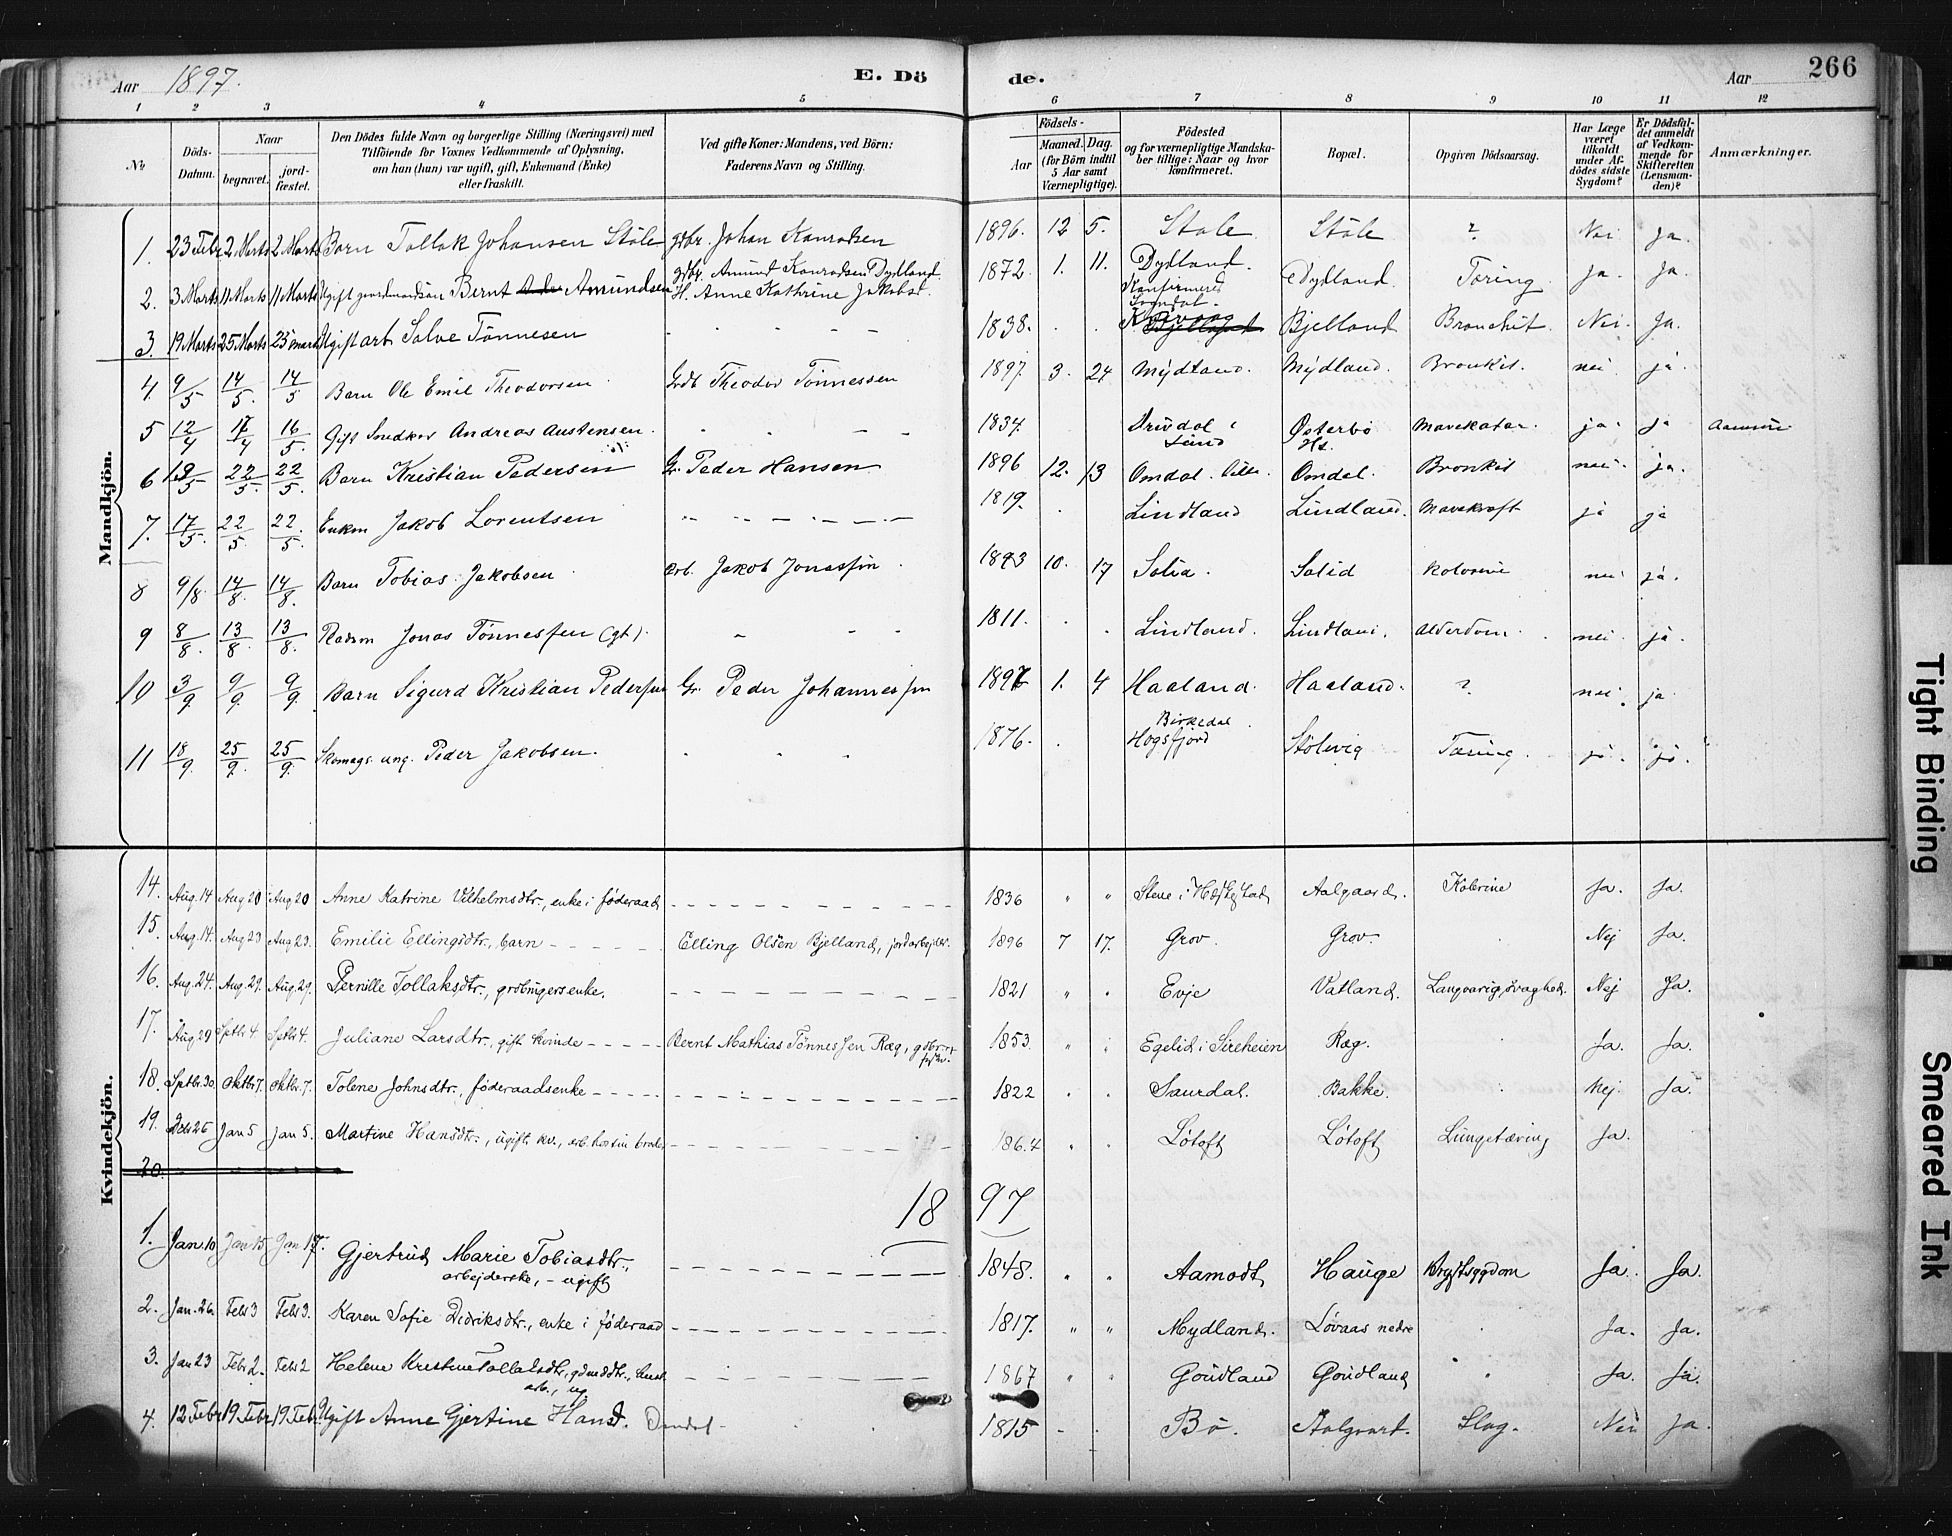 Aar 1897.
E. Dö
de.
Aar
266
1 2 3 4 5 6 7 8 9 10 11 12
№
Döds-Datum.
Naar
begravet.
jord-fæstet.
Den Dödes fulde Navn og borgerlige Stilling (Næringsvei) med
Tilföiende for Voxnes Vedkommende af Oplysning,
om han (hun) var ugift, gift, Enkemand (Enke)
eller fraskilt.
Ved gifte Koner: Mandens, ved Börn:
Faderens Navn og Stilling.
Födsels-
Aar
Maaned. Dag.
(for Börn indtil
5 Aar samt
Værnepligtige).
Födested
og for værnepligtige Mandska-
ber tillige: Naar og hvor
konfirmeret.
Bopæl.
Opgiven Dödsaarsag.
Har Læge
været
tilkaldt
under Af-
dödes sidste
Sygdom?
Er Dödsfal-
det anmeldt
af Vedkom-
mende for
Skifteretten
(Lensman-
den)?
Anmærkninger.
Mandkjön.
1. 23 Febr 2 Marts 2 Marts Barn Tollak Johansen Stöle gdbr. Johan Konradsen 1896. 12 5. Stöle Stöle ? Nei Ja.
2. 3 Marts 11 Marts 11 Marts Ugift gaardmandsön Bernt Amundsen gdbr. Amund Konradsen Dydland H. Anne Kathrine Jakobsd. 1872. 1. 11. Dydland. Konfirmered Sogndal. Dydland. Tæring Ja. Ja.
3. 19 Marts 25 Marts 25 marts Ugift arb Salve Tönnesen 1838. Bjelland Bjelland Bronchit. Nei. Ja.
4. 9/5 14/5. 14/5 Barn Ole Emil Theodorsen Grdb Theodor Tönnessen 1897. 3. 24 Mydland. Mydland. Bronkit. nei. ja.
5 12/4 17/4 16/5. Gift Snedker Andreas Austensen. 1834. Drivdal i Lund Österbö Hs. Mavekatar. ja. ja
6 19/5 22/5. 22/5. Barn Kristian Pedersen G. Peder Hansen 1896 12. 13 Omdal. Omdal. Bronkit nei. ja.
7. 17/5. 22/5. 22/5. Enkem Jakob Lorentsen 1819. Lindland Lindland. Mavekræft ja ja
8 9/8. 14/8. 14/8. Barn Tobias Jakobsen arb. Jakob Jonassøn 1893 10. 17 Solid. Solid kolerine nei ja.
9 8/8. 13/8. 13/8. Jonas Tönnessen (gt). 1811. Lindland. Lindland. Alderdom. nei. ja.
10 3/9 9/9. 9/9. Barn Sigurd Kristian Pedersen G. Peder Johannessen 1897 1. 4 Haaland. Haaland. ? nei ja
11 18/9. 25/9. 25/9. Skomag. ung. Peder Jakobsen. 1876. Birkedal Høgsfjord Stölevig Tæring. ja. ja.
Kvindekjön.
14. Aug. 14 Aug 20 Aug 20 Anne Katrine Vilhelmsdtr., enke i føderaad 1836 " " Stene i Hæskestad Aalgaard. Kolerine Ja. Ja.
15. Aug. 14. Aug 23 Aug 23. Emilie Ellingsdtr., barn Elling Olsen Bjelland, jordarbejder. 1896 7 17. Grov. Grov. Nej Ja.
16. Aug. 24. Aug. 29. Aug. 29. Pernille Tollaksdtr., grdbrugersenke. 1821 " " Evje Vatland. Langvarig svaghed. Nej Ja.
17. Aug 29 Sptbr 4. Sptbr 4. Juliane Larsdtr., gift kvinde Bernt Mathias Tønnessen Ræg, gdbr. 1853. " " Egelid i Sireheien Ræg. Ja. Ja.
18. Sptbr. 30. Oktbr 7. Oktbr. 7. Tolene Johnsdtr., føderaadsenke 1822 Saurdal. Bakke. Nej. Ja.
19. Dcbr 26 Jan 5 Jan 5. Martine Hansdtr., ugift kv., arb. hos sin broder 1864 Løtoft Løtoft Lungetæring Ja.
20.
1897
1. Jan 10 Jan 15 Jan 17. Gjertrud Marie Tobiasdtr., arbejderske, - ugift 1848. " " Aamodt Hauge Brystsygdom Ja. Ja.
2. Jan. 26. Febr 3 Febr 3. Karen Sofie Didriksdtr., enke i føderaad 1817. " " Mydland. Løvaas nedre Ja. Ja.
3. Jan 23 Febr 2. Febr 2 Helene Kristine Tollaksdtr., gdmddtr., arb., ug. 1867 " " Goudland Goudland Ja. Ja.
4. 12 Febr 19 Febr 19 Febr Ugift Anne Gjertine Hansd. Omdal 1815 Bö. Aalgaard. Slag. Nei Ja.
Tight Binding
Smeared Ink